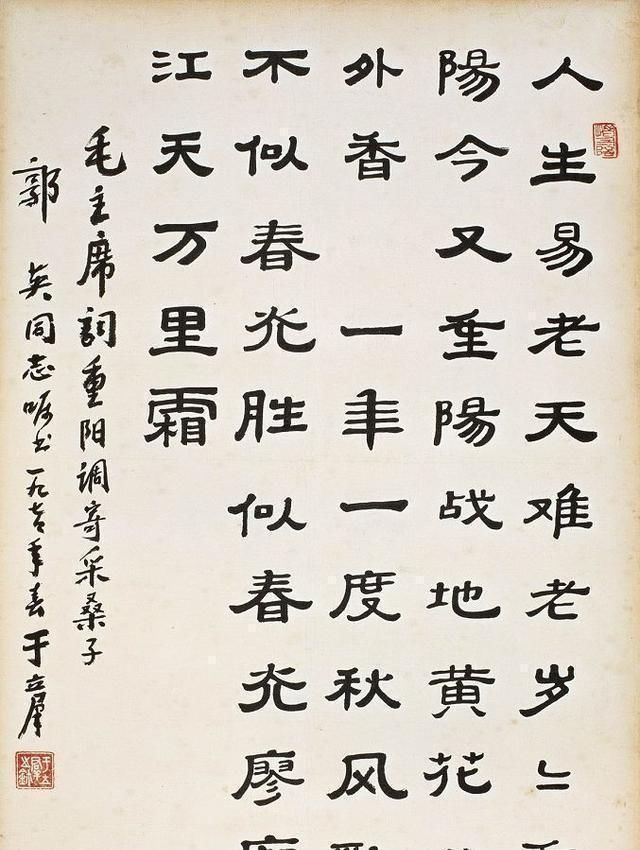 人生易老天难老岁〻
陽今又重陽战地黄花
外香 一年一度秋风
不似春光胜似春光廖
江天万里霜
毛主席詞重阳调寄采桑子
郭 英同志嘱书一九七〻年春于立群